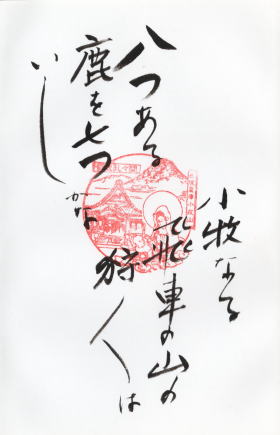 小牧なる
飛車の山の
狩人は
八つある
鹿を七つ
かな
いし